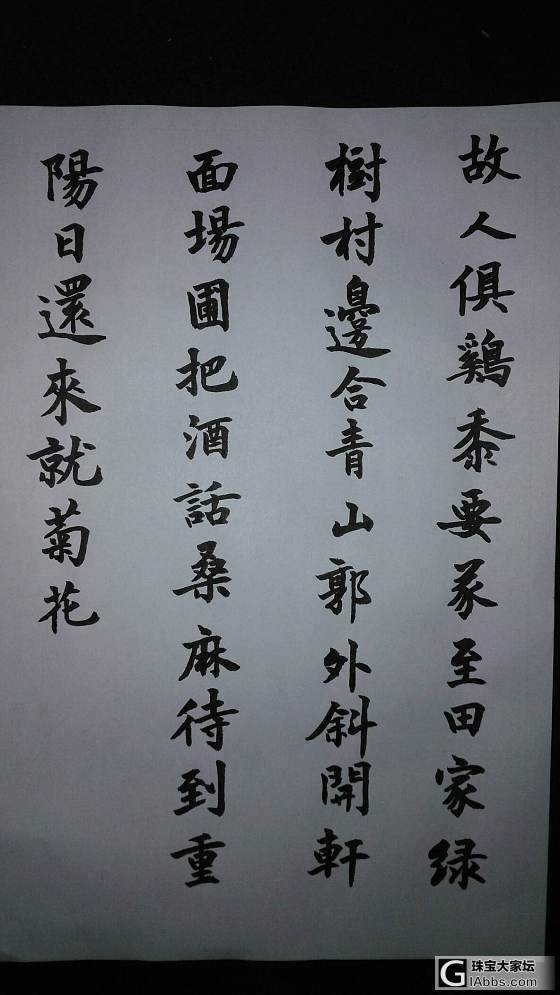 故人俱鷄黍要家至田家绿
樹村邊合青山郭外斜開軒
面場圃把酒話桑麻待到重
陽日還來就菊花
珠宝大家坛
GIAbbs.com